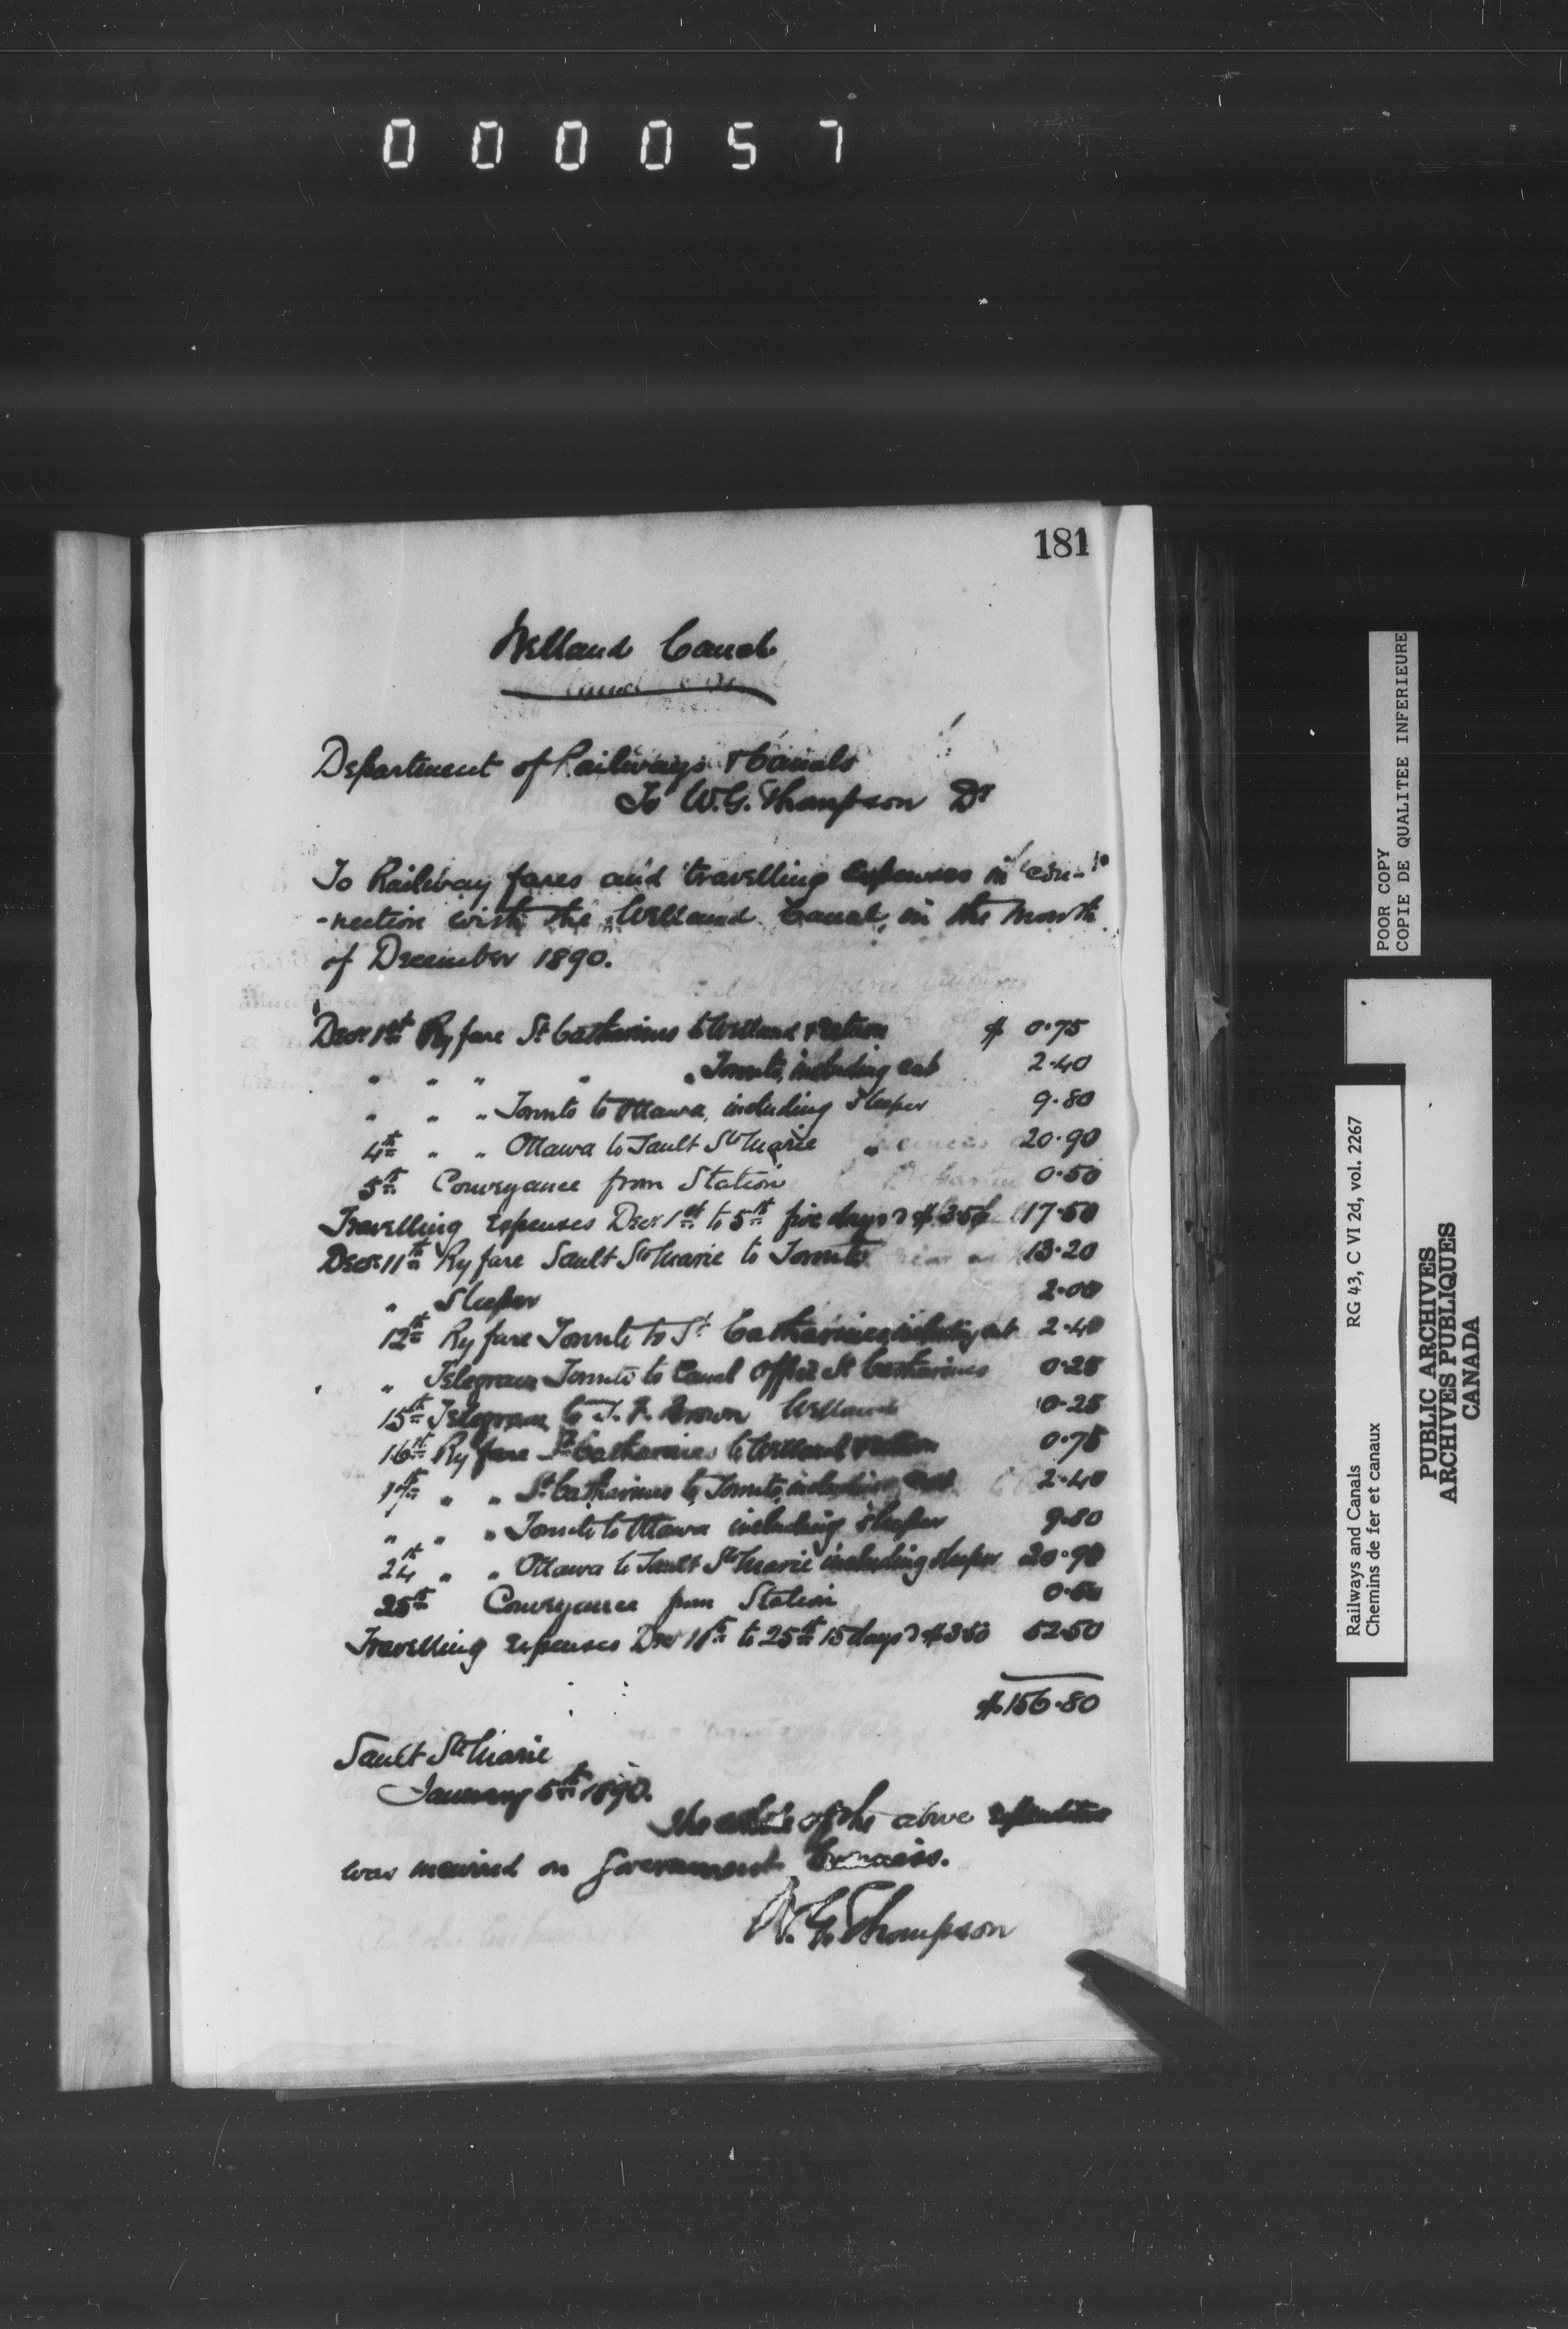 000057
181
Welland Canal
Department of Railways & Canals
To W.G. Thompson Dr
To Railway fares and travelling expenses in con-
-nection with the Welland Canal, in the month
of December 1890.
Decr 1st Ry fare St Catharines to Welland & return $ 0.75
" " " " " Toronto, including cab 2.40
" " " Toronto to Ottawa, including sleeper 9.80
4th " " Ottawa to Sault Ste Marie " 20.90
5th Conveyance from Station 0.50
Travelling expenses Decr 1st to 5th five days @ $3.50 17.50
Decr 11th Ry fare Sault Ste Marie to Toronto 13.20
" Sleeper 2.00
12th Ry fare Toronto to St Catharines, including cab 2.40
" Telegram Toronto to Canal Office St Catharines 0.25
15th Telegram to J. F. Brown Welland 0.25
16th Ry fare St Catharines to Welland & return 0.75
17th " " St Catharines to Toronto, including cab 2.40
" " " Toronto to Ottawa including sleeper 9.80
24th " " Ottawa to Sault Ste Marie including sleeper 20.90
25th Conveyance from Station 0.50
Travelling expenses Decr 11th to 25th 15 days @ $3.50 52.50
$156.80
Sault Ste Marie
January 5th 1890.
The whole of the above expenditure
was incurred on Government business.
W. G. Thompson
POOR COPY
COPIE DE QUALITEE INFERIEURE
Railways and Canals RG 43, C VI 2d, vol. 2267
Chemins de fer et canaux
PUBLIC ARCHIVES
ARCHIVES PUBLIQUES
CANADA